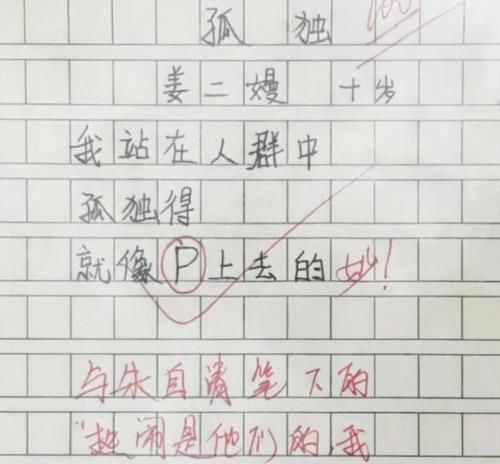 孤独 100
姜二嫚 十岁
我站在人群中
孤独得
就像P上去的 妙!
与朱自清笔下的
"热闹是他们的,我